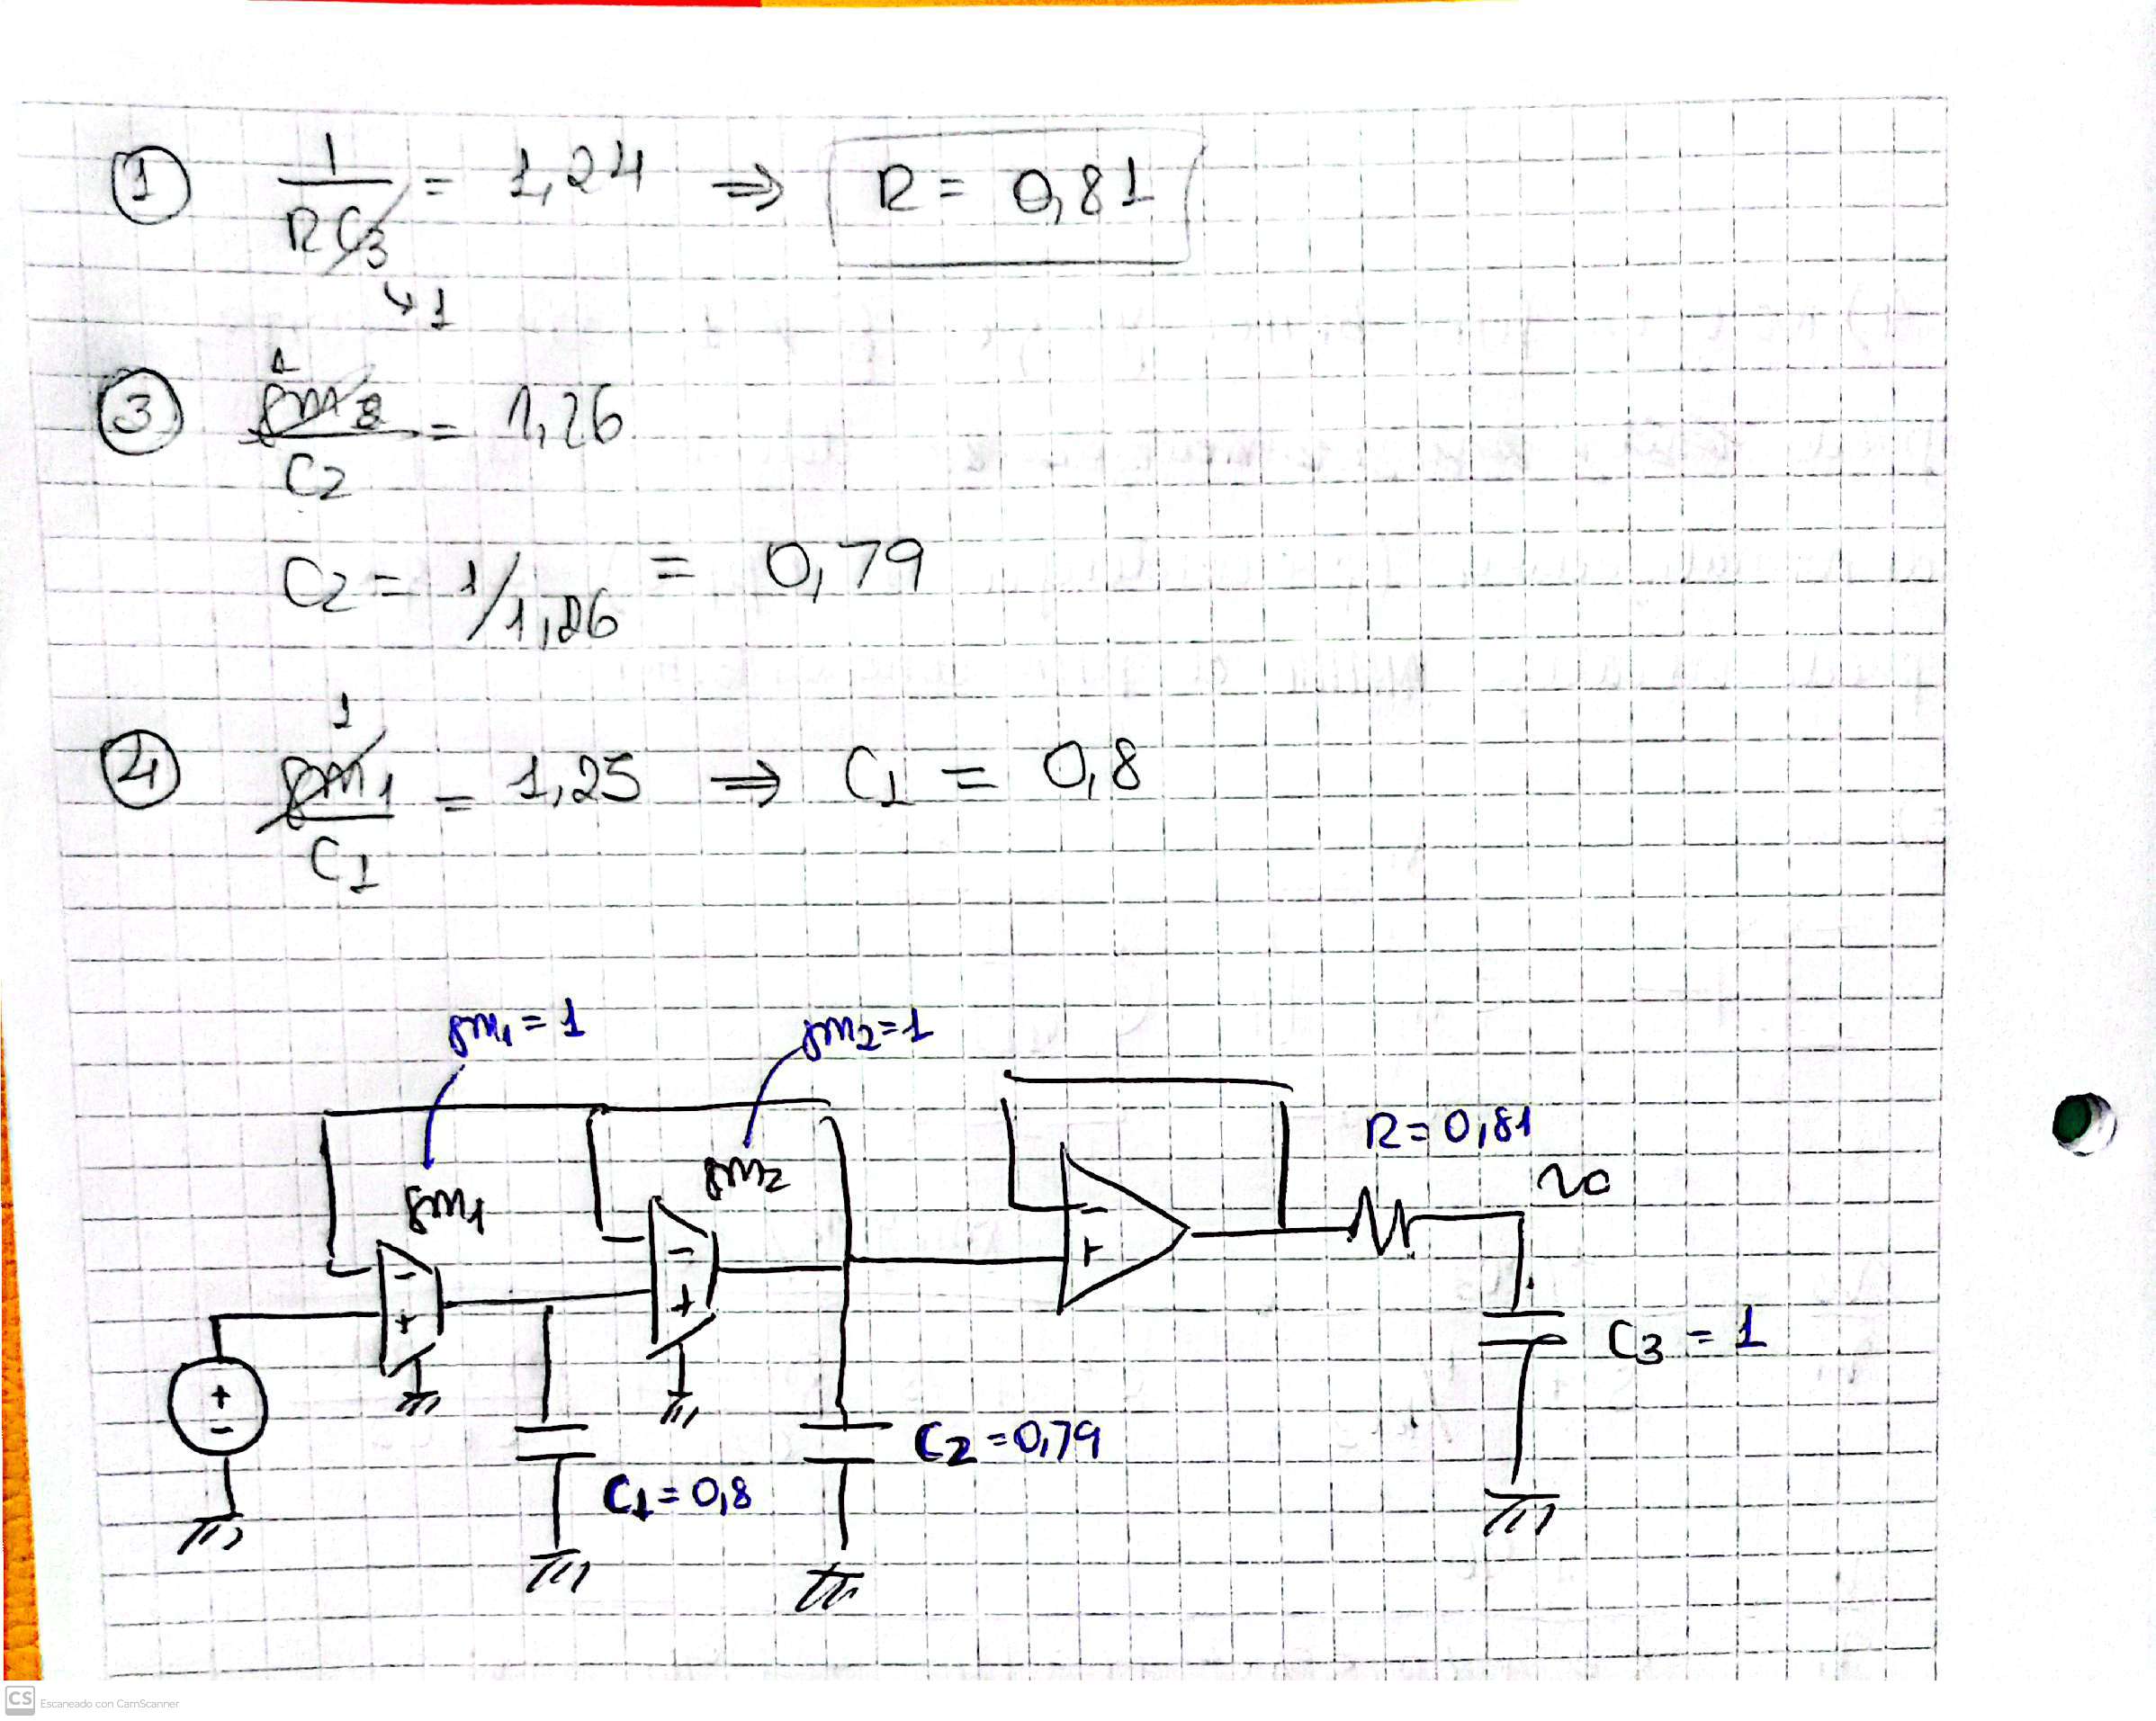 ① 1/RC3 = 1,24 ⇒ R = 0,81
↳ 1
1
③ gm2/C2 = 1,26
C2 = 1/1,26 = 0,79
1
④ gm1/C1 = 1,25 ⇒ C1 = 0,8
gm1 = 1
gm2=1
R=0,81
gm2
vo
gm1
-
+
-
+
-
+
+
-
C3 = 1
C2 =0,79
C1=0,8
CS Escaneado con CamScanner